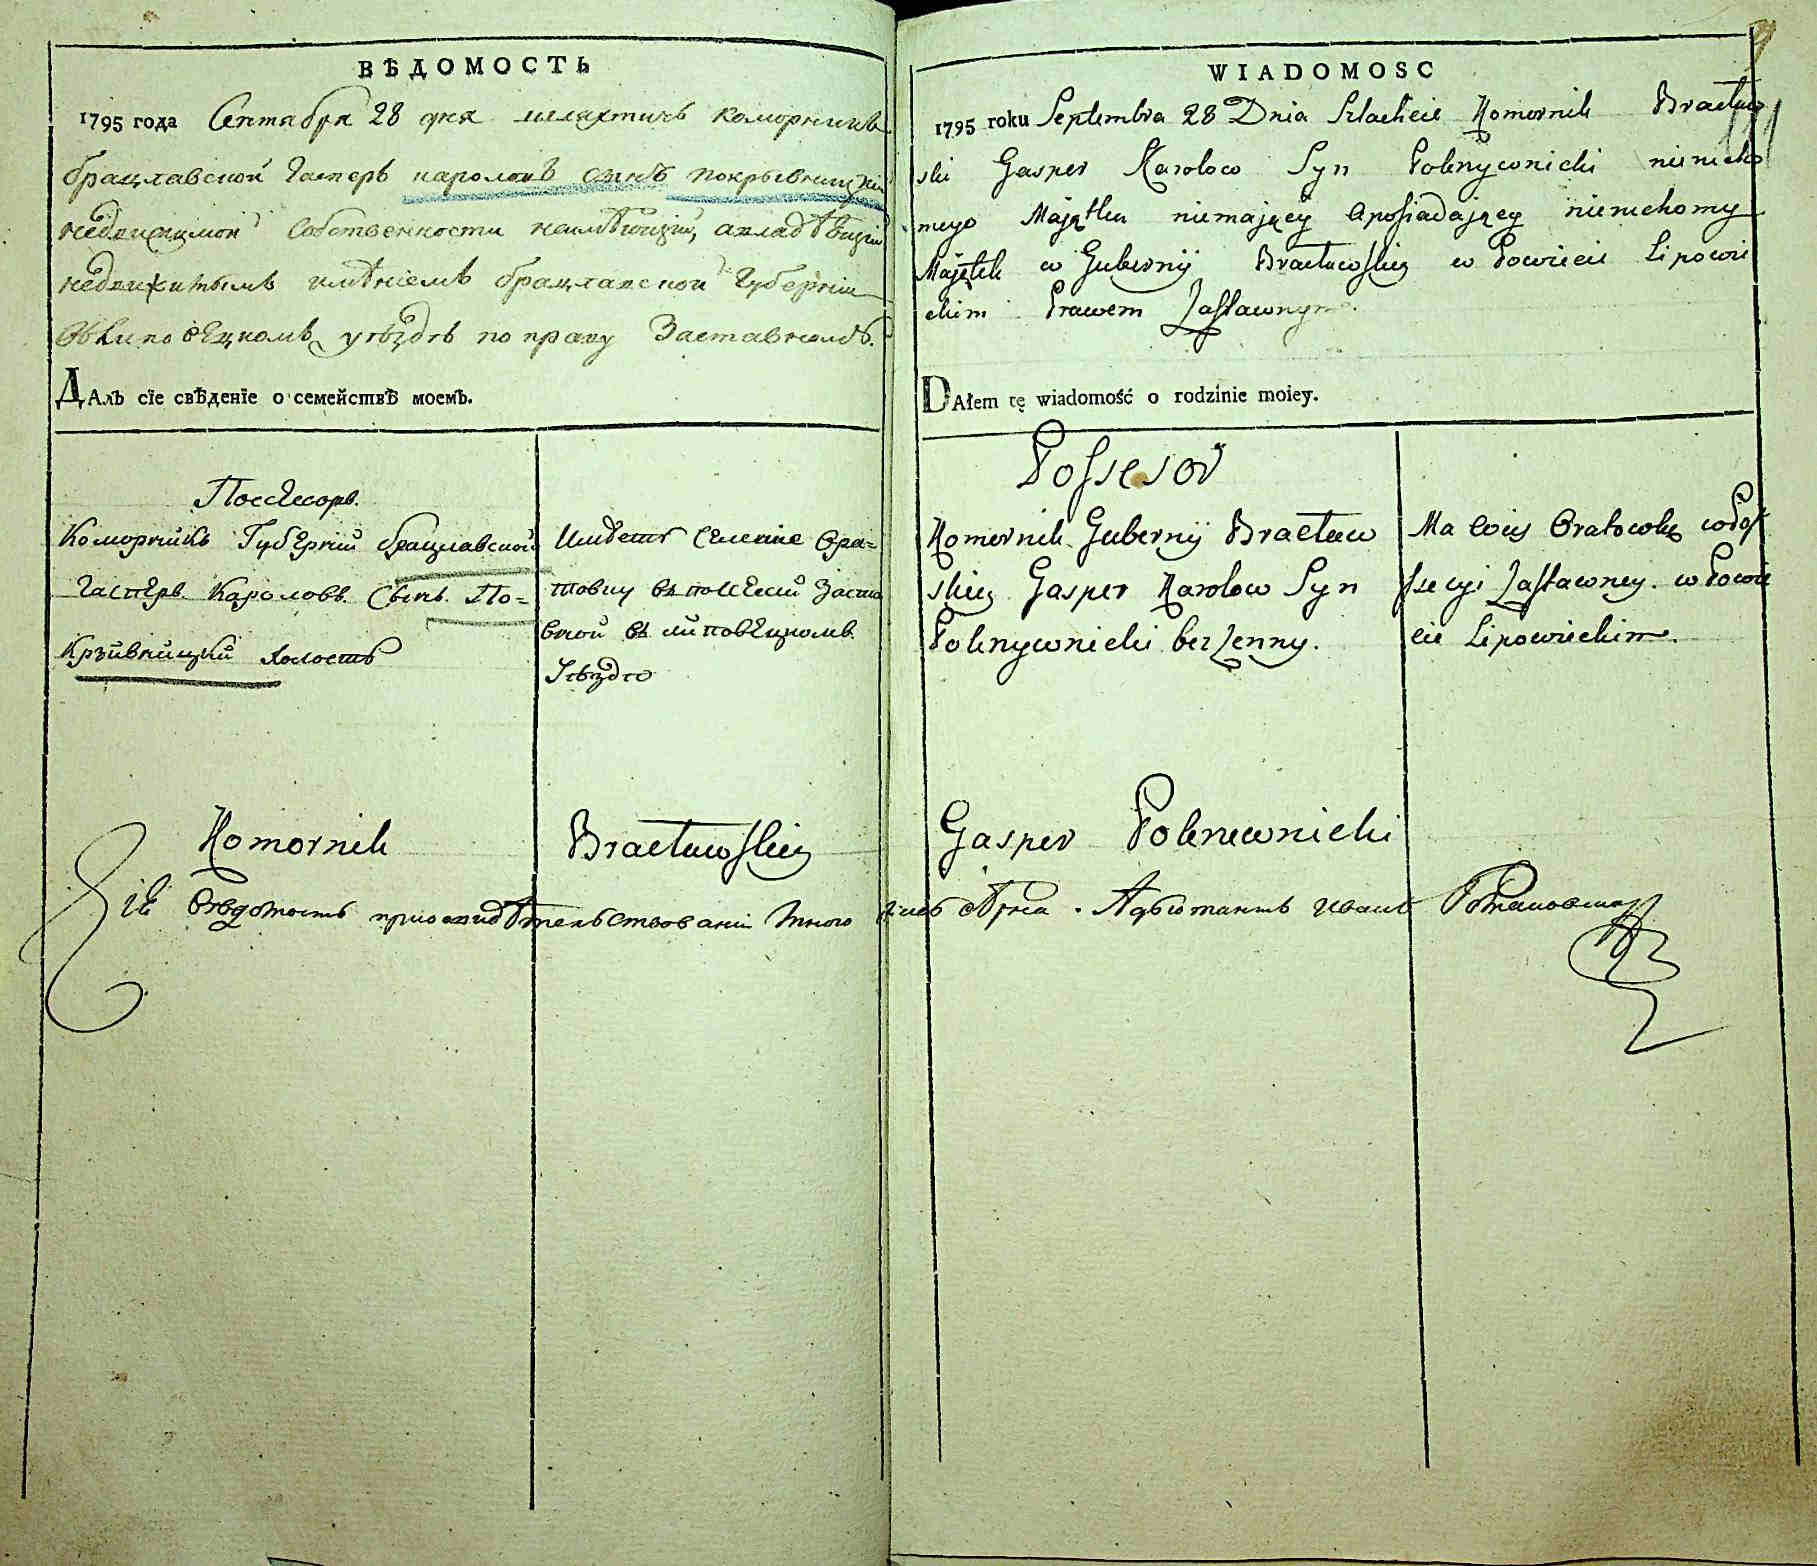 ВѢДОМОСТЬ
1795 года Сентября 28 дня шляхтичь коморникъ
брацлавской Гасперъ кароловъ сынъ покрывницкий
недвижимой собственности неимѣющий, авладѣющий
недвижитымъ имѣниемъ брацлавской Губернии
въ липовѣцкомъ уѣздѣ по праву Заставному.
ДАлъ сїе свѣденїе о семействѣ моемъ.
Поссесоръ.
Коморникъ Губернии брацлавской
Гасперъ Кароловъ Сынъ По-
кривницкий холостъ
Имѣетъ селение Ора-
товку въ посесии Заста
вной въ липовецкомъ
Уѣздѣ
WIADOMOSC
1795 roku Septembra 28 Dnia Szlachcic Komornik Bracław
ski Gasper Karolow Syn Pokrywnicki nierucho
mego Majątku niemaiący Aposiadaiący nieruchomy
Majątek w Gubernij Bracławskiey w Powiecie Lipowie
ckim Prawem Zastawnym.
DAłem tę wiadomość o rodzinie moiey.
Possesor
Komornik Gubernij Bracław
skiey Gasper Karolow Syn
Pokrywnicki bezżenny.
Ma wieś Oratowkę wPos
sesyi Zastawney w Powie
cie Lipowieckim.
Komornik Bracławskiey Gasper Pokrewnicki
Сiе Вѣдомость при Адъютантъ Иванъ